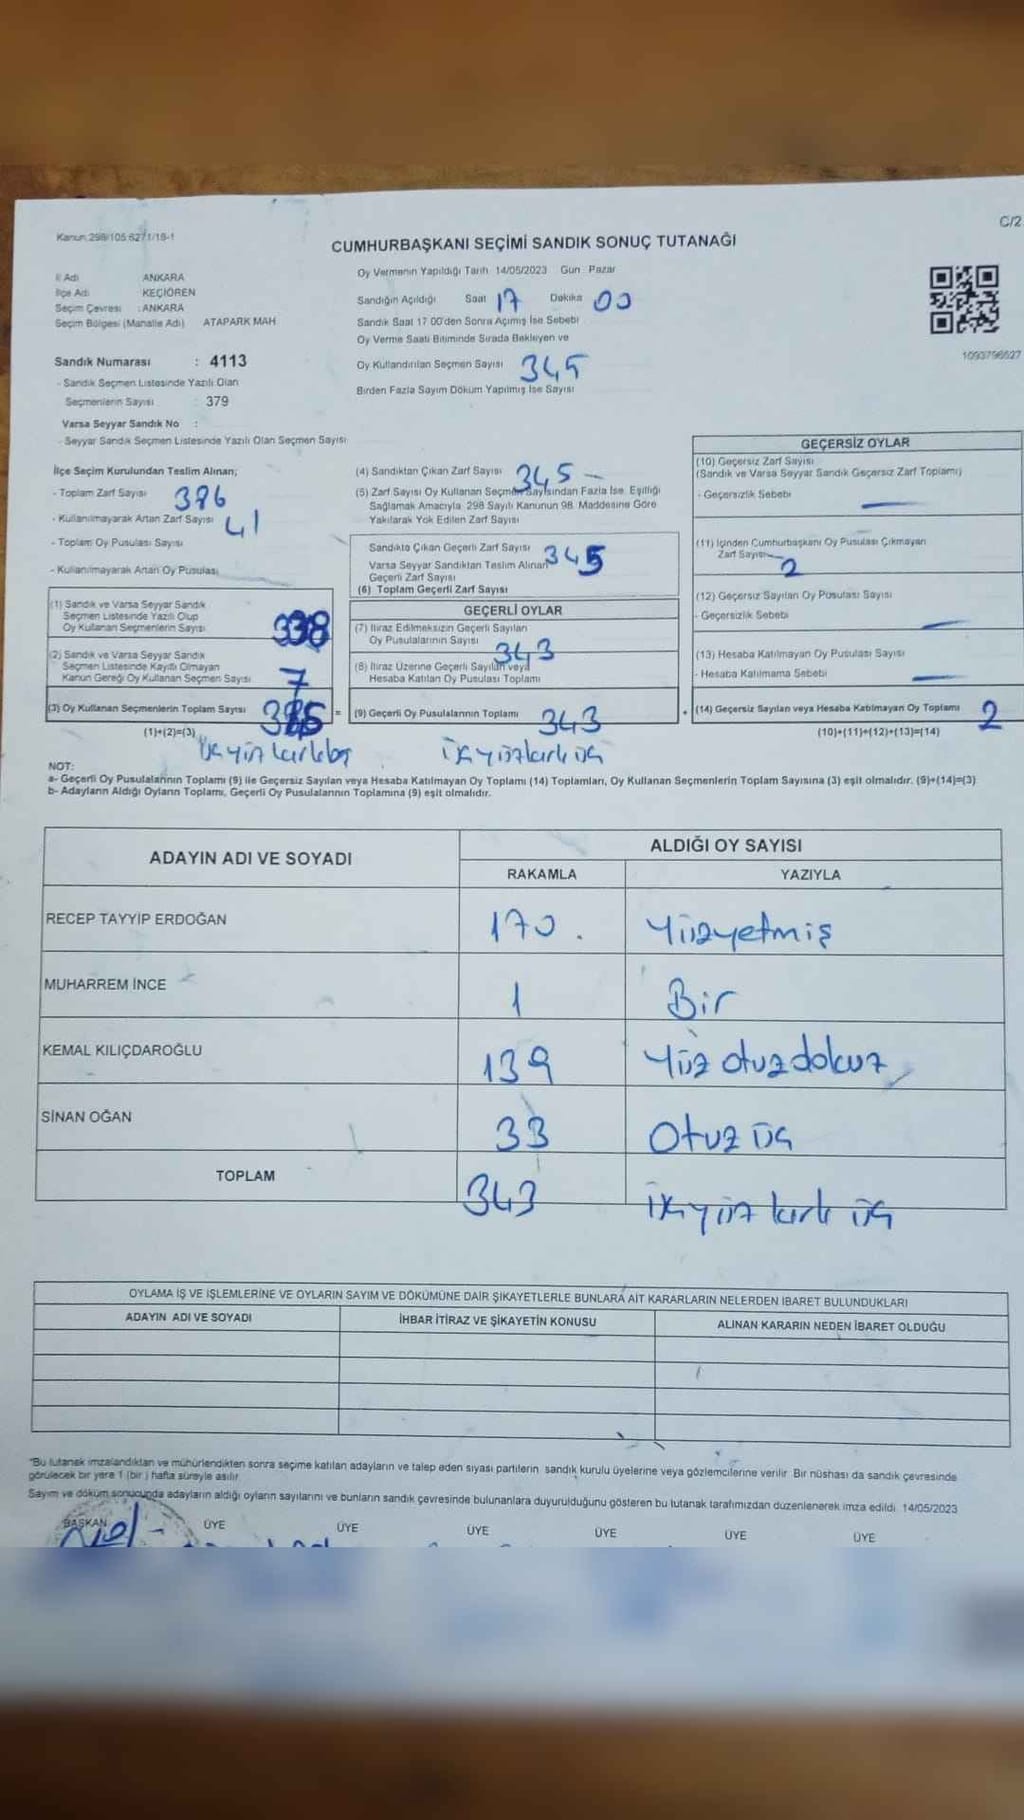 Kanun 298/105.627/1/18-1
C/2
CUMHURBAŞKANI SEÇİMİ SANDIK SONUÇ TUTANAĞI
İl Adı ANKARA
İlçe Adı KEÇİÖREN
Seçim Çevresi : ANKARA
Seçim Bölgesi (Mahalle Adı) ATAPARK MAH
Oy Vermenin Yapıldığı Tarih 14/05/2023 Gün Pazar
Sandığın Açıldığı Saat 17 Dakika 00
Sandık Saat 17 00'den Sonra Açımış İse Sebebi
Oy Verme Saati Bitiminde Sırada Bekleyen ve
Oy Kullandırılan Seçmen Sayısı 345
Birden Fazla Sayım Döküm Yapılmış İse Sayısı
1093796527
Sandık Numarası : 4113
- Sandık Seçmen Listesinde Yazılı Olan
Seçmenlerin Sayısı 379
Varsa Seyyar Sandık No :
- Seyyar Sandık Seçmen Listesinde Yazılı Olan Seçmen Sayısı
İlçe Seçim Kurulundan Teslim Alınan;
- Toplam Zarf Sayısı 386
- Kullanılmayarak Artan Zarf Sayısı 41
- Toplam Oy Pusulası Sayısı
- Kullanılmayarak Artan Oy Pusulası
(1) Sandık ve Varsa Seyyar Sandık
Seçmen Listesinde Yazılı Olup
Oy Kullanan Seçmenlerin Sayısı 338
(2) Sandık ve Varsa Seyyar Sandık
Seçmen Listesinde Kayıtlı Olmayan
Kanun Gereği Oy Kullanan Seçmen Sayısı 7
(3) Oy Kullanan Seçmenlerin Toplam Sayısı 345 =
(1)+(2)=(3)
(4) Sandıktan Çıkan Zarf Sayısı 345
(5) Zarf Sayısı Oy Kullanan Seçmen Sayısından Fazla İse, Eşitliği
Sağlamak Amacıyla 298 Sayılı Kanunun 98. Maddesine Göre
Yakılarak Yok Edilen Zarf Sayısı
Sandıkta Çıkan Geçerli Zarf Sayısı 345
Varsa Seyyar Sandıktan Teslim Alınan
Geçerli Zarf Sayısı
(6) Toplam Geçerli Zarf Sayısı
GEÇERLİ OYLAR
(7) İtiraz Edilmeksizin Geçerli Sayılan
Oy Pusulalarının Sayısı 343
(8) İtiraz Üzerine Geçerli Sayılan veya
Hesaba Katılan Oy Pusulası Toplamı
(9) Geçerli Oy Pusulalarının Toplamı 343 +
GEÇERSİZ OYLAR
(10) Geçersiz Zarf Sayısı
(Sandık ve Varsa Seyyar Sandık Geçersiz Zarf Toplamı)
- Geçersizlik Sebebi
(11) İçinden Cumhurbaşkanı Oy Pusulası Çıkmayan
Zarf Sayısı 2
(12) Geçersiz Sayılan Oy Pusulası Sayısı
- Geçersizlik Sebebi
(13) Hesaba Katılmayan Oy Pusulası Sayısı
- Hesaba Katılmama Sebebi
(14) Geçersiz Sayılan veya Hesaba Katılmayan Oy Toplamı 2
(10)+(11)+(12)+(13)=(14)
NOT:
a- Geçerli Oy Pusulalarının Toplamı (9) ile Geçersiz Sayılan veya Hesaba Katılmayan Oy Toplamı (14) Toplamları, Oy Kullanan Seçmenlerin Toplam Sayısına (3) eşit olmalıdır. (9)+(14)=(3)
b- Adayların Aldığı Oyların Toplamı, Geçerli Oy Pusulalarının Toplamına (9) eşit olmalıdır.
ADAYIN ADI VE SOYADI
ALDIĞI OY SAYISI
RAKAMLA YAZIYLA
RECEP TAYYİP ERDOĞAN 170. Yüzyetmiş
MUHARREM İNCE 1 Bir
KEMAL KILIÇDAROĞLU 139 Yüz otuz dokuz
SİNAN OĞAN 33 Otuz üç
TOPLAM 343 üçyüz kırk üç
OYLAMA İŞ VE İŞLEMLERİNE VE OYLARIN SAYIM VE DÖKÜMÜNE DAİR ŞİKAYETLERLE BUNLARA AİT KARARLARIN NELERDEN İBARET BULUNDUKLARI
ADAYIN ADI VE SOYADI İHBAR İTİRAZ VE ŞİKAYETİN KONUSU ALINAN KARARIN NEDEN İBARET OLDUĞU
*Bu tutanak imzalandıktan ve mühürlendikten sonra seçime katılan adayların ve talep eden siyasi partilerin sandık kurulu üyelerine veya gözlemcilerine verilir. Bir nüshası da sandık çevresinde
görülecek bir yere 1 (bir ) hafta süreyle asılır.
Sayım ve döküm sonucunda adayların aldığı oyların sayılarını ve bunların sandık çevresinde bulunanlara duyurulduğunu gösteren bu tutanak tarafımızdan düzenlenerek imza edildi 14/05/2023
BAŞKAN ÜYE ÜYE ÜYE ÜYE ÜYE ÜYE